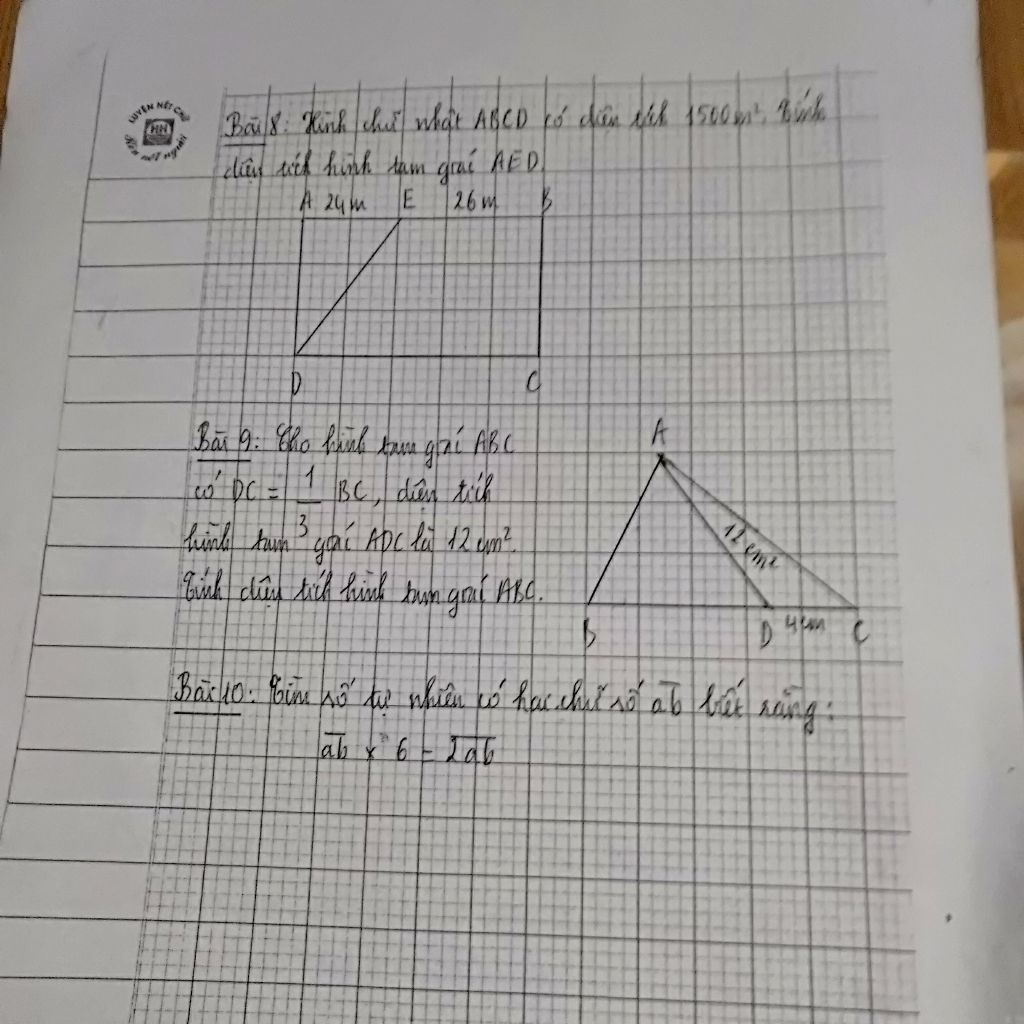 LUYỆN NÉT CHỮ
HH
Rèn nết người
Bài 8: Hình chữ nhật ABCD có diện tích 1500m². Tính
diện tích hình tam giác AED.
A 24m E 26m B
D C
Bài 9: Cho hình tam giác ABC
có DC = 1/3 BC, diện tích
hình tam giác ADC là 12 cm².
Tính diện tích hình tam giác ABC.
A
12 cm²
B D 4cm C
Bài 10: Tìm số tự nhiên có hai chữ số a̅b̅ biết rằng:
a̅b̅ x 6 = 2̅a̅b̅